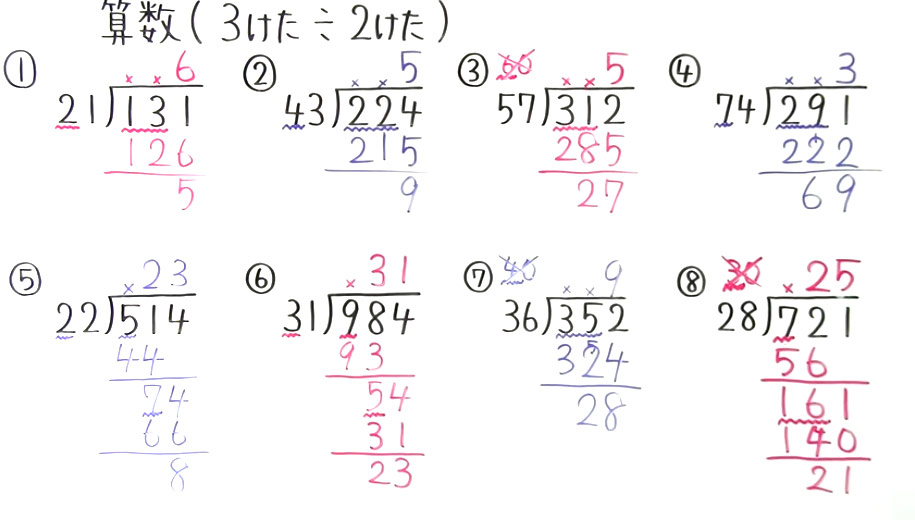 算数(3けた÷2けた)
① × × 6
21)131
126
5
② × × 5
43)224
215
9
③ 60 × × 5
57)312
285
27
④ × × 3
74)291
222
69
⑤ × 23
22)514
44
74
66
8
⑥ × 31
31)984
93
54
31
23
⑦ 40 × × 9
36)352
324
28
⑧ 30 × 25
28)721
56
161
140
21